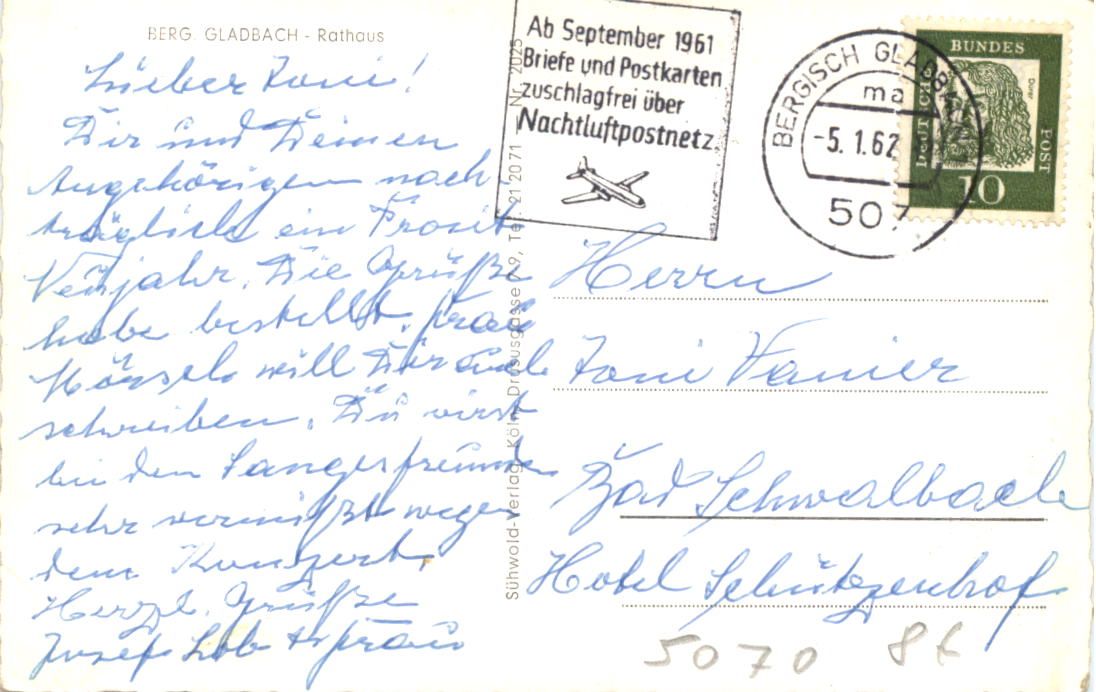 BERG. GLADBACH - Rathaus
Lieber Toni!
Dir und Deinen
Angehörigen nach
träglich ein Prosit
Neujahr. Die Grüße
habe bestellt. Frau
will Dir auch
schreiben. Du wirst
bei den Sangesfreunden
sehr vermißt wegen
dem Konzert.
Herzl. Grüße
Josef Lob u Frau
Sühwold-Verlag, Köln, Drususgasse 7-9, Tel. 21 20 71 Nr. 2025
Ab September 1961
Briefe und Postkarten
zuschlagfrei über
Nachtluftpostnetz
BERGISCH GLADBA
ma
-5.1.62
507
DEUTSCHE
BUNDES
POST
Dürer
10
Herrn
Toni Vanier
Bad Schwalbach
Hotel Schützenhof
5070 86